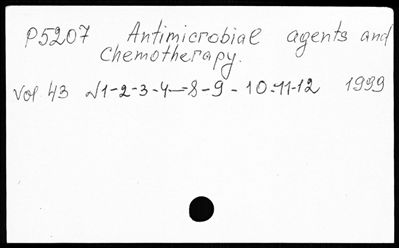 P5207 Antimicrobial agents and
chemotherapy.
Vol 43 №1-2-3-4-8-9-10-11-12 1999